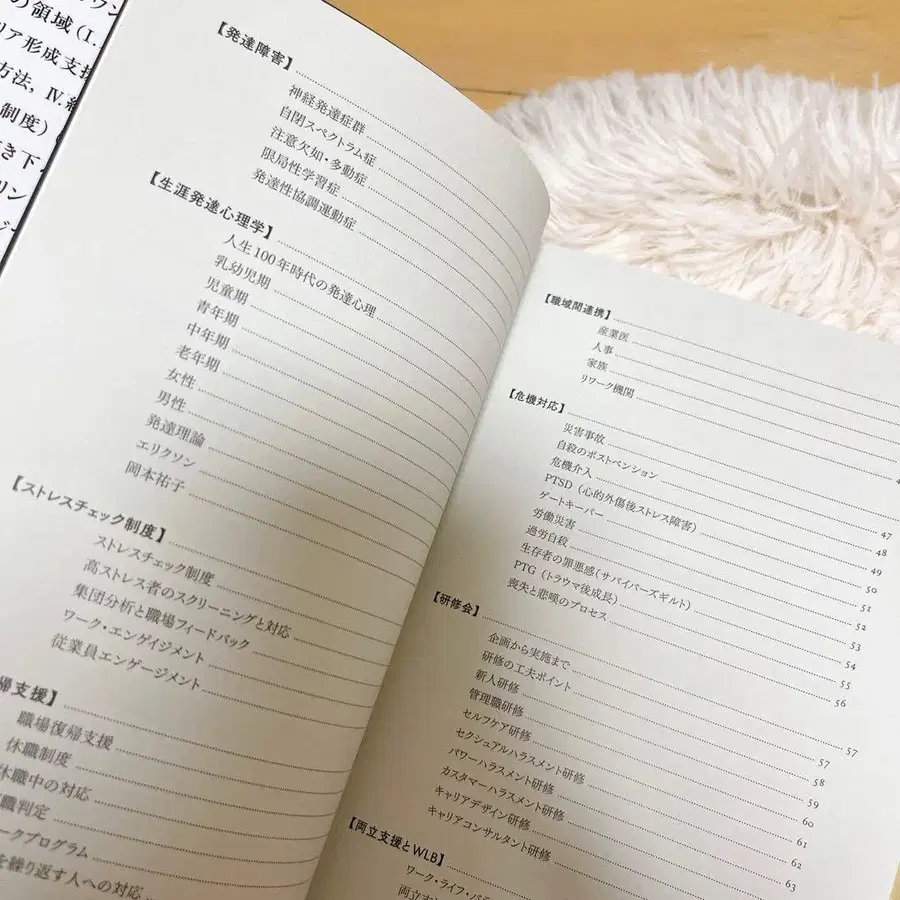 ウン
の領域(I.
リア形成支援
方法, Ⅳ.
制度)
き下
リン
ジ
【発達障害】
神経発達症群
自閉スペクトラム症
注意欠如・多動症
限局性学習症
発達性協調運動症
【生涯発達心理学】
人生100年時代の発達心理
乳幼児期
児童期
青年期
中年期
老年期
女性
男性
発達理論
エリクソン
岡本祐子
【ストレスチェック制度】
ストレスチェック制度
高ストレス者のスクリーニングと対応
集団分析と職場フィードバック
ワーク・エンゲイジメント
従業員エンゲージメント
帰支援】
職場復帰支援
休職制度
休職中の対応
職判定
ークプログラム
を繰り返す人への対応
【職域間連携】
産業医
人事
家族
リワーク機関
【危機対応】
災害事故
自殺のポストベンション 4
危機介入
PTSD(心的外傷後ストレス障害) 47
ゲートキーパー 48
労働災害 49
過労自殺 50
生存者の罪悪感(サバイバーズギルト) 51
PTG(トラウマ後成長) 52
喪失と悲嘆のプロセス 53
【研修会】 54
企画から実施まで 55
研修の工夫ポイント 56
新人研修
管理職研修 57
セルフケア研修 57
セクシュアルハラスメント研修 58
パワーハラスメント研修 59
カスタマーハラスメント研修 60
キャリアデザイン研修 61
キャリアコンサルタント研修 62
【両立支援とWLB】 63
ワーク・ライフ・バラ
両立支